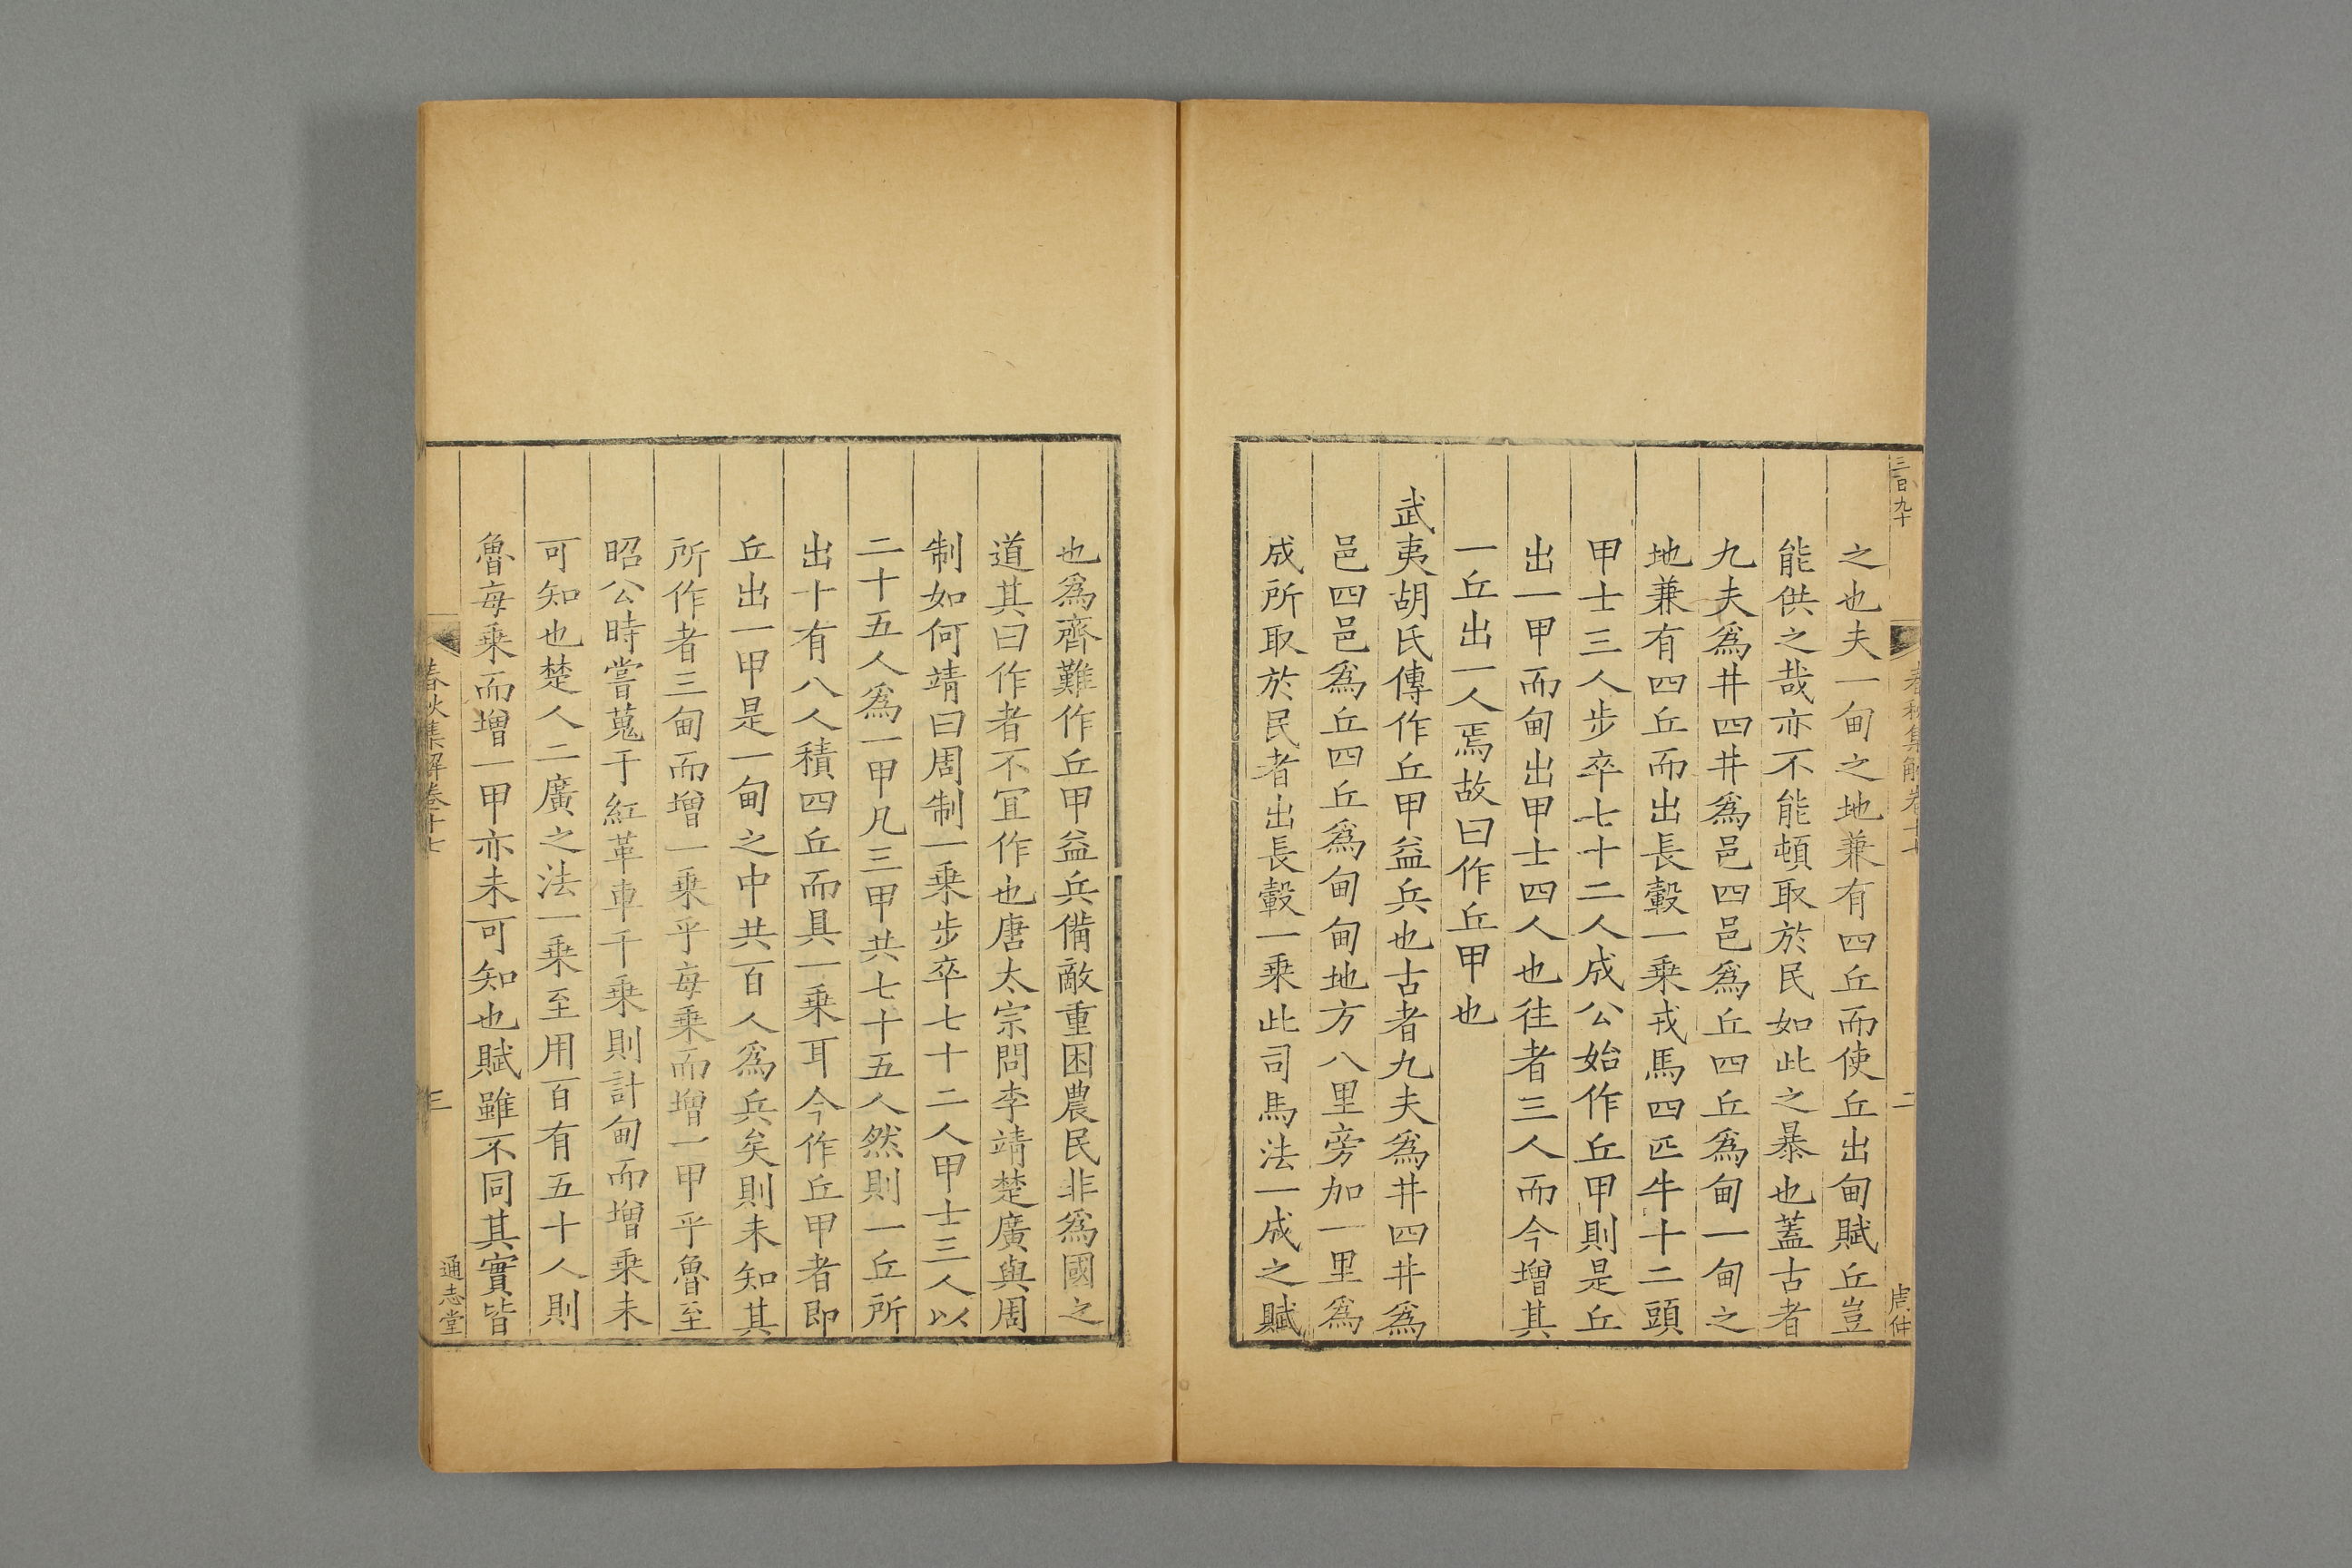 三百九十
春秋集解卷十七
二
之也夫一甸之地兼有四丘而使丘出甸賦丘豈
能供之哉亦不能頓取於民如此之暴也蓋古者
九夫爲井四井爲邑四邑爲丘四丘爲甸一甸之
地兼有四丘而出長轂一乗戎馬四匹牛十二頭
甲士三人步卒七十二人成公始作丘甲則是丘
出一甲而甸出甲士四人也往者三人而今增其
一丘出一人焉故曰作丘甲也
武夷胡氏傳作丘甲益兵也古者九夫爲井四井爲
邑四邑爲丘四丘爲甸甸地方八里旁加一里爲
成所取於民者出長轂一乗此司馬法一成之賦
也爲齊難作丘甲益兵備敵重困農民非爲國之
道其曰作者不冝作也唐太宗問李靖楚廣與周
制如何靖曰周制一乗步卒七十二人甲士三人以
二十五人爲一甲凡三甲共七十五人然則一丘所
出十有八人積四丘而具一乗耳今作丘甲者即
丘出一甲是一甸之中共百人爲兵矣則未知其
所作者三甸而增一乗乎每乗而增一甲乎魯至
昭公時嘗蒐于紅革車千乗則計甸而增乗未
可知也楚人二廣之法一乗至用百有五十人則
魯每乗而增一甲亦未可知也賦雖不同其實皆
春秋集解卷十七
三
通志堂